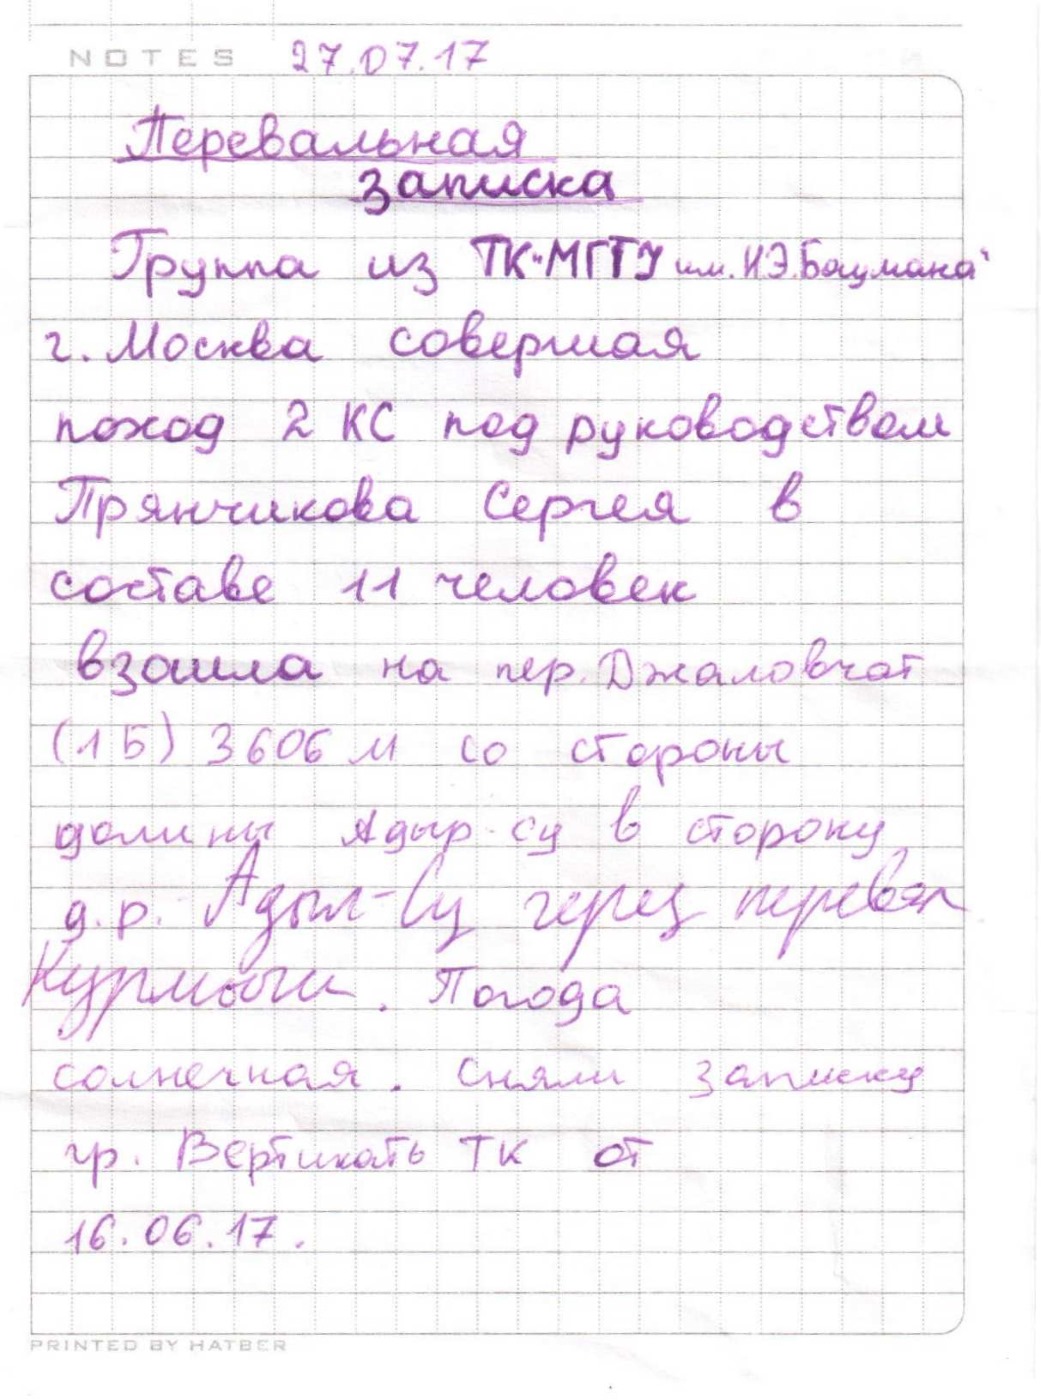 NOTES 27.07.17
Перевальная
записка
Группа из ТК "МГТУ им. Н.Э.Баумана"
г. Москва совершая
поход 2 КС под руководством
Прянчикова Сергея в
составе 11 человек
взошла на пер. Джаловчат
(1Б) 3606 м со стороны
долины Адыр-су в сторону
д.р. Адыл-Су через перевал
Курмычи. Погода
солнечная. Сняли записку
гр. Вертикаль ТК от
16.06.17.
PRINTED BY HATBER